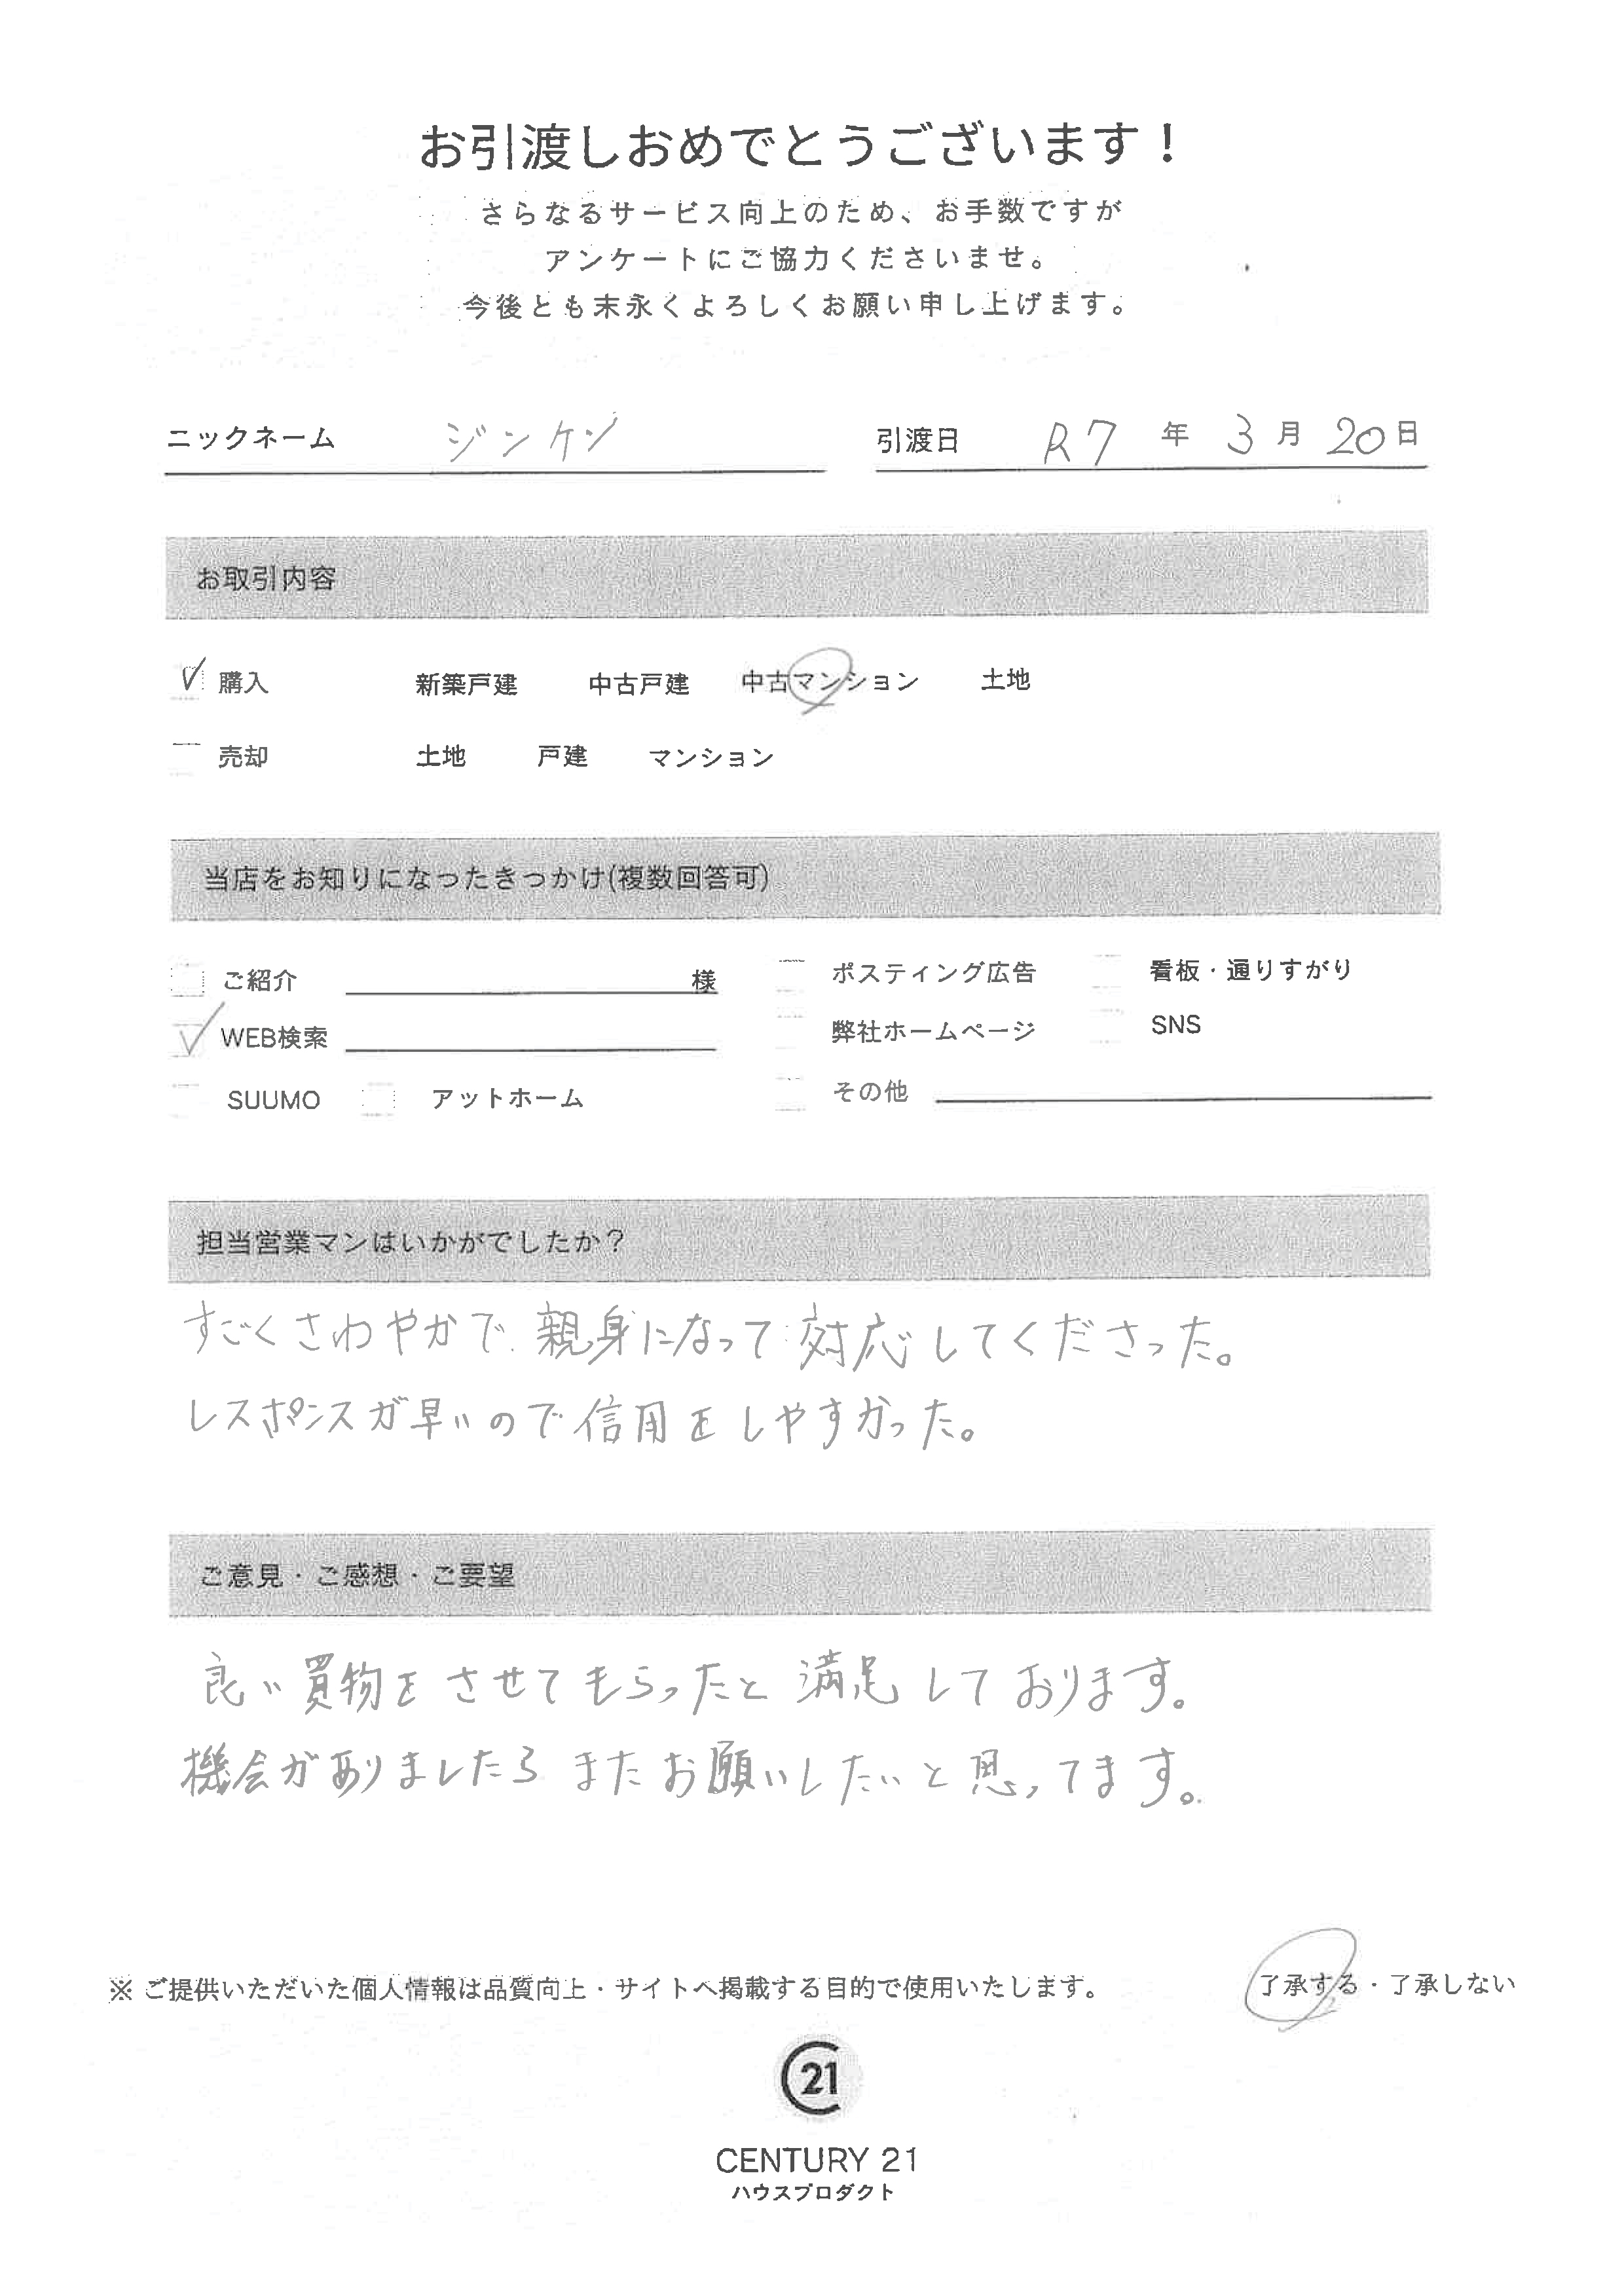 お引渡しおめでとうございます！
さらなるサービス向上のため、お手数ですが
アンケートにご協力くださいませ。
今後とも末永くよろしくお願い申し上げます。
ニックネーム ジンケン 引渡日 R7 年 3 月 20 日
お取引内容
購入 新築戸建 中古戸建 中古マンション 土地
売却 土地 戸建 マンション
当店をお知りになったきっかけ(複数回答可)
ご紹介 様 ポスティング広告 看板・通りすがり
WEB検索 弊社ホームページ SNS
SUUMO アットホーム その他
担当営業マンはいかがでしたか？
すごくさわやかで親身になって対応してくださった。
レスポンスが早いので信用をしやすかった。
ご意見・ご感想・ご要望
良い買物をさせてもらったと満足しております。
機会がありましたらまたお願いしたいと思ってます。
※ ご提供いただいた個人情報は品質向上・サイトへ掲載する目的で使用いたします。 了承する・了承しない
21
CENTURY 21
ハウスプロダクト